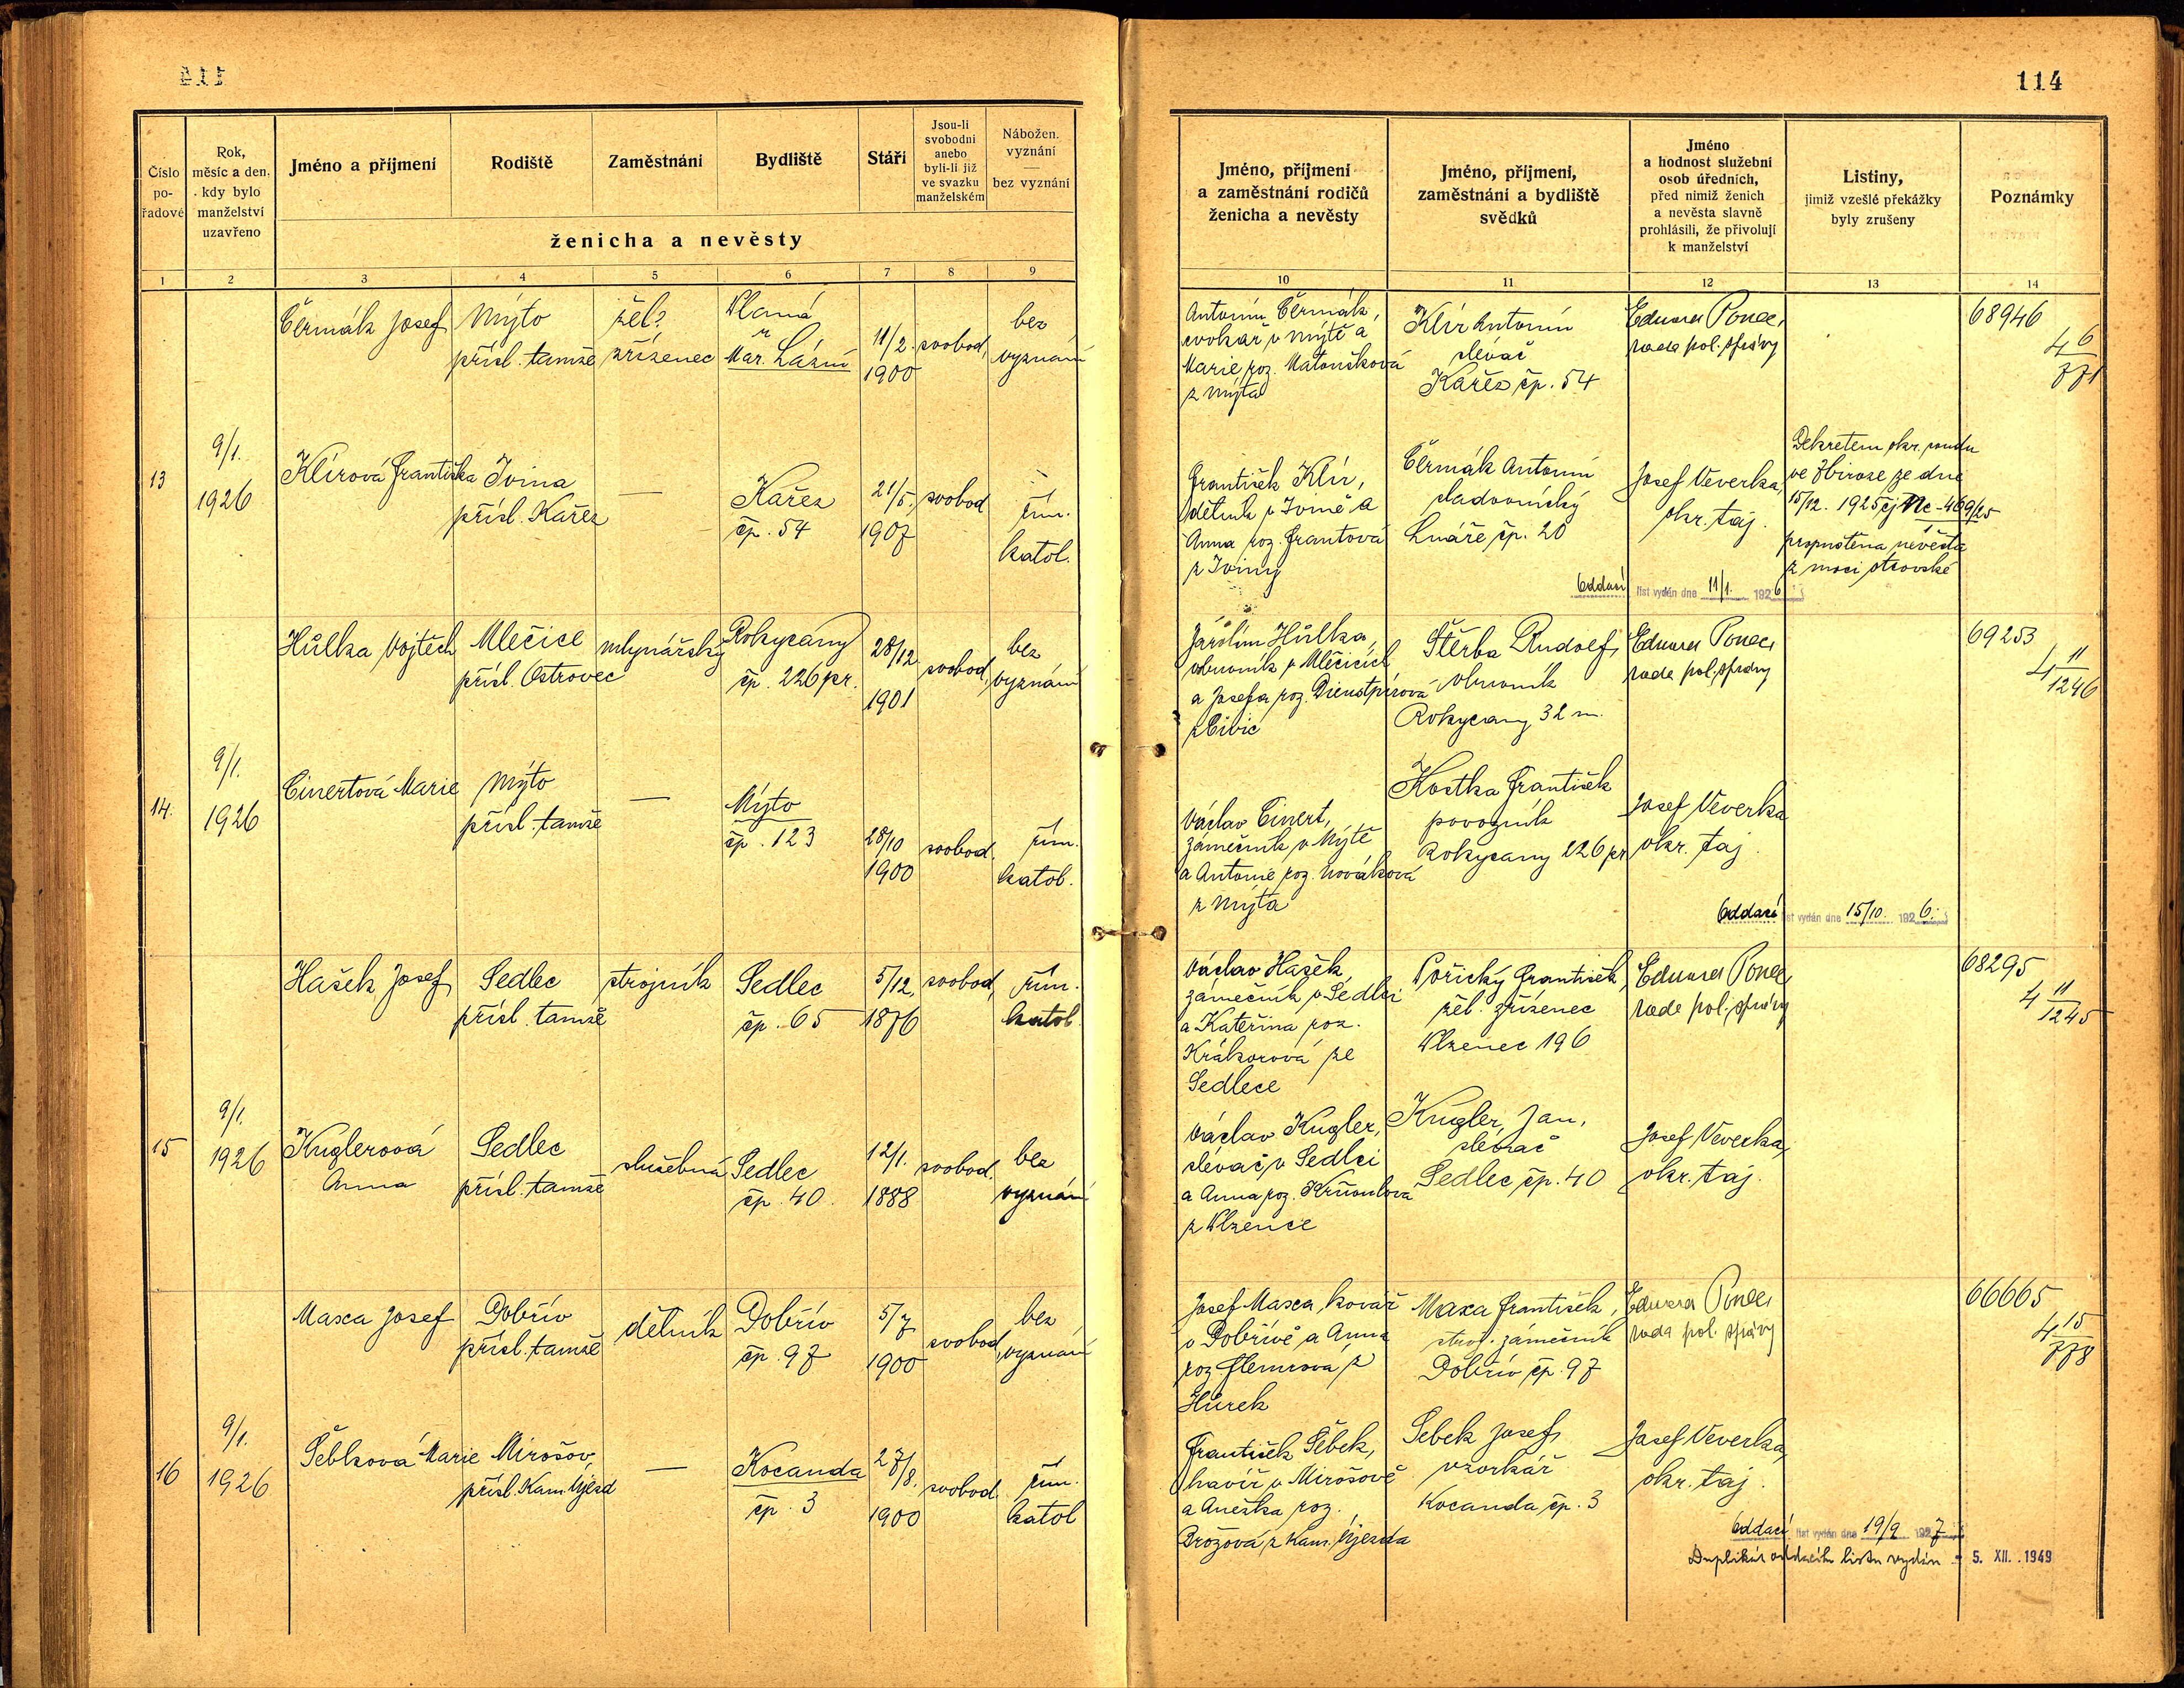 114
Číslo pořadové
Rok, měsíc a den, kdy bylo manželství uzavřeno
Jméno a příjmení
Rodiště
Zaměstnání
Bydliště
Stáří
Jsou-li svobodni anebo byli-li již ve svazku manželském
Nábožen. vyznání — bez vyznání
ženicha a nevěsty
Jméno, příjmení a zaměstnání rodičů ženicha a nevěsty
Jméno, příjmení, zaměstnání a bydliště svědků
Jméno a hodnost služební osob úředních, před nimiž ženich a nevěsta slavně prohlásili, že přivolují k manželství
Listiny, jimiž vzešlé překážky byly zrušeny
Poznámky
1 2 3 4 5 6 7 8 9 10 11 12 13 14
13
9/1.
1926
Čermák Josef
Mýto
přísl. tamže
žel.
zřízenec
Planá
u
Mar. Lázní
11/2.
1900
svobod.
bez
vyznání
Antonín Čermák,
cvokař v Mýtě a
Marie roz. Matoušková
z Mýta
Klír Antonín
slévač
Kařez čp. 54
Eduard Ponec,
rada pol. správy
68946
4 6/771
Klírová Františka
Jvina
přísl. Kařez
—
Kařez
čp. 54
21/5.
1907
svobod
řím.
katol.
František Klír,
dělník v Jvině a
Anna roz. Frantová
z Jviny
Čermák Antonín
sladovnický
Lnáře čp. 20
Josef Veverka,
okr. taj.
Dekretem okr. soudu
ve Zbiroze ze dne
15/12. 1925 čj Nc - 469/25
propuštěna nevěsta
z moci otcovské
Oddací list vydán dne 11/1. 1926
14.
9/1.
1926
Hůlka Vojtěch
Mlečice
přísl. Ostrovec
mlynářský
Rokycany
čp. 226 pr.
28/12
1901
svobod.
bez
vyznání
Jarolím Hůlka,
obuvník v Mlečicích
a Josefa roz.
Štěrba Rudolf,
obuvník
Rokycany 32 m.
Eduard Ponec,
rada pol. správy
69253
4 11/1246
Cinertová Marie
Mýto
přísl. tamže
—
Mýto
čp. 123
28/10
1900
svobod.
řím.
katol.
Václav Cinert,
zámečník v Mýtě
a Antonie roz. Nováková
z Mýta
Kostka František
povozník
Rokycany 226 pr.
Josef Veverka
okr. taj.
Oddací list vydán dne 15/10 1926.
15
9/1.
1926
Hašek Josef
Sedlec
přísl. tamže
strojník
Sedlec
čp. 65
5/12.
1876
svobod.
řím.
katol.
Václav Hašek,
zámečník v Sedlci
a Kateřina roz.
Krákorová ze
Sedlece
Pořický František,
žel. zřízenec
Plzenec 196
Eduard Ponec,
rada pol. správy
68295
4 11/1245
Kuglerová
Anna
Sedlec
přísl. tamže
služebná
Sedlec
čp. 40.
12/1.
1888
svobod.
bez
vyznání
Václav Kugler,
slévač v Sedlci
a Anna roz. Krňoulová
z Plzence
Kugler, Jan,
slévač
Sedlec čp. 40
Josef Veverka,
okr. taj.
16
9/1.
1926
Maxa Josef
Dobřív
přísl. tamže
dělník
Dobřív
čp. 97
5/7
1900
svobod.
bez
vyznání
Josef Maxa, kovář
v Dobřívě a Anna
roz.
Hůrek
Maxa František,
stroj. zámečník
Dobřív čp. 97
Eduard Ponec,
rada pol. správy
66665
4 15/778
Šebková Marie
Mirošov,
přísl. Kam. Újezd
—
Kocanda
čp. 3
27/8.
1900
svobod.
řím.
katol
František Šebek,
havíř v Mirošově
a Anežka roz.
Brožová z Kam. Újezda
Šebek Josef,
vzorkář
Kocanda čp. 3
Josef Veverka,
okr. taj.
Oddací list vydán dne 19/9 1927
Duplikát oddacího listu vydán - 5. XII. 1949